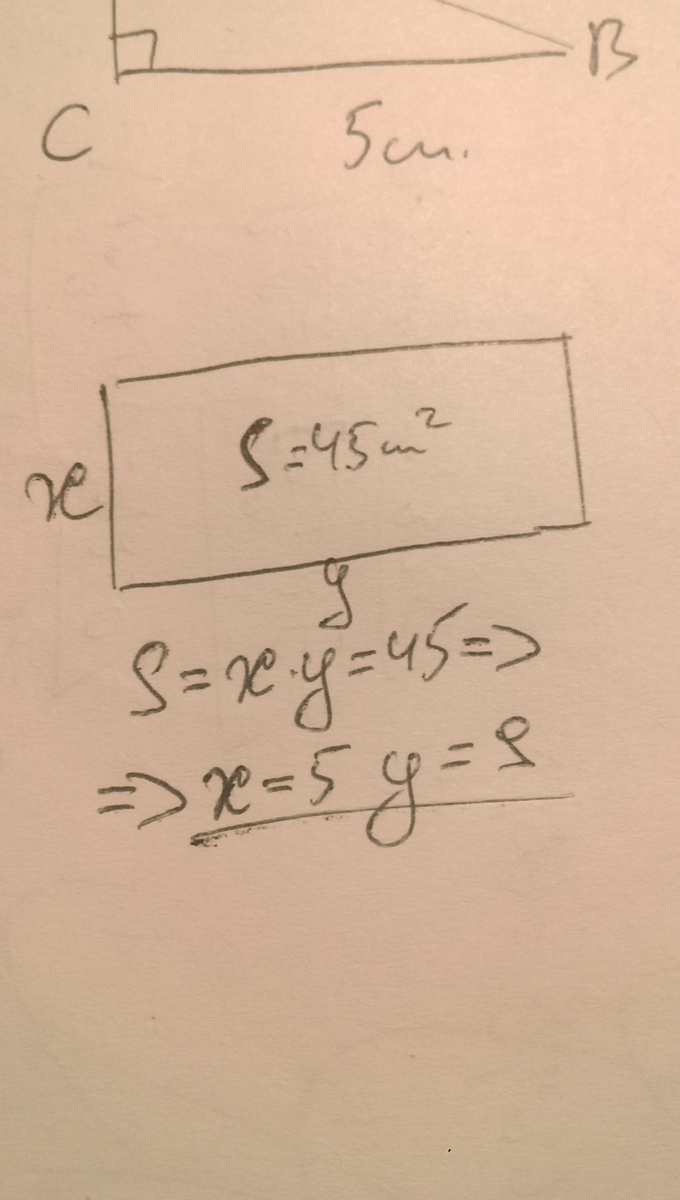 B
C
5cm.
S=45cm²
x
y
S=x·y=45=>
=>x=5 y=9